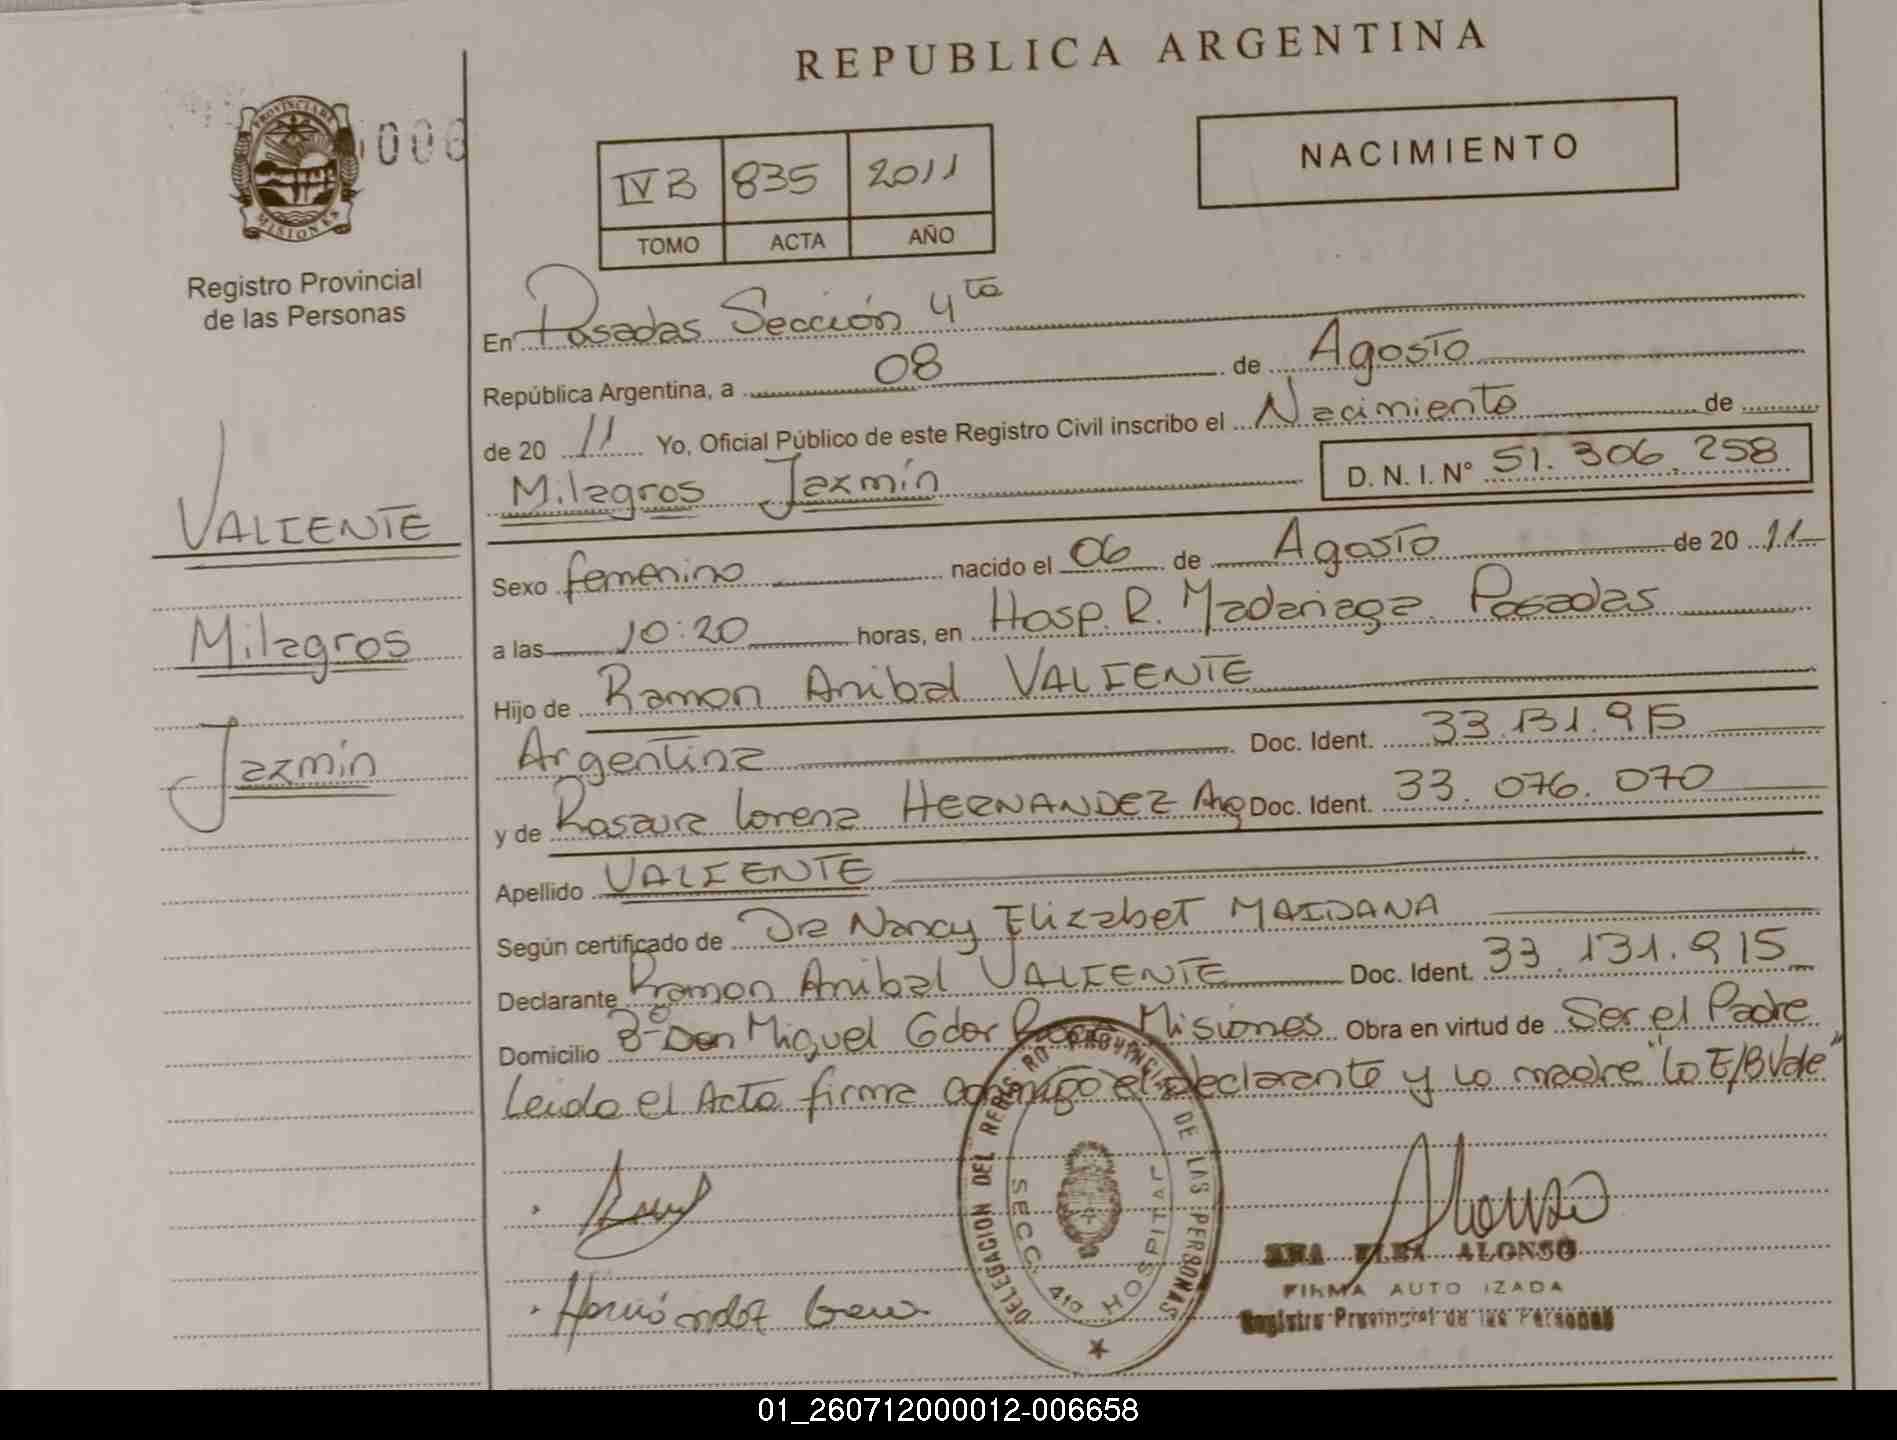 REPUBLICA ARGENTINA
PROVINCIA DE MISIONES
000
Registro Provincial
de las Personas
NACIMIENTO
IV B 835 2011
TOMO ACTA AÑO
En Posadas Sección 4ta
República Argentina, a 08 de Agosto
de 20 11 Yo, Oficial Público de este Registro Civil inscribo el Nacimiento de
Milagros Jazmín D. N. I. N° 51.306.258
VALIENTE
Milagros
Jazmín
Sexo femenino nacido el 06 de Agosto de 20 11
a las 10:20 horas, en Hosp. R. Madariaga. Posadas
Hijo de Ramon Anibal VALIENTE
Argentina Doc. Ident. 33.131.915
y de Rosaura Lorena HERNANDEZ Arg Doc. Ident. 33.076.070
Apellido VALIENTE
Según certificado de Dra Nancy Elizabet MAIDANA
Declarante Ramon Anibal VALIENTE Doc. Ident. 33.131.915
Domicilio Bº Don Miguel Gdor Roca Misiones Obra en virtud de Ser el Padre
Leida el Acta firma conmigo el declarante y la madre "Lo E/B Vale"
DELEGACION DEL REGISTRO PROVINCIAL DE LAS PERSONAS
SECC. 4ta HOSPITAL
Hernández
Alonso
ANA ELBA ALONSO
FIRMA AUTO IZADA
Registro Provincial de las Personas
01_260712000012-006658